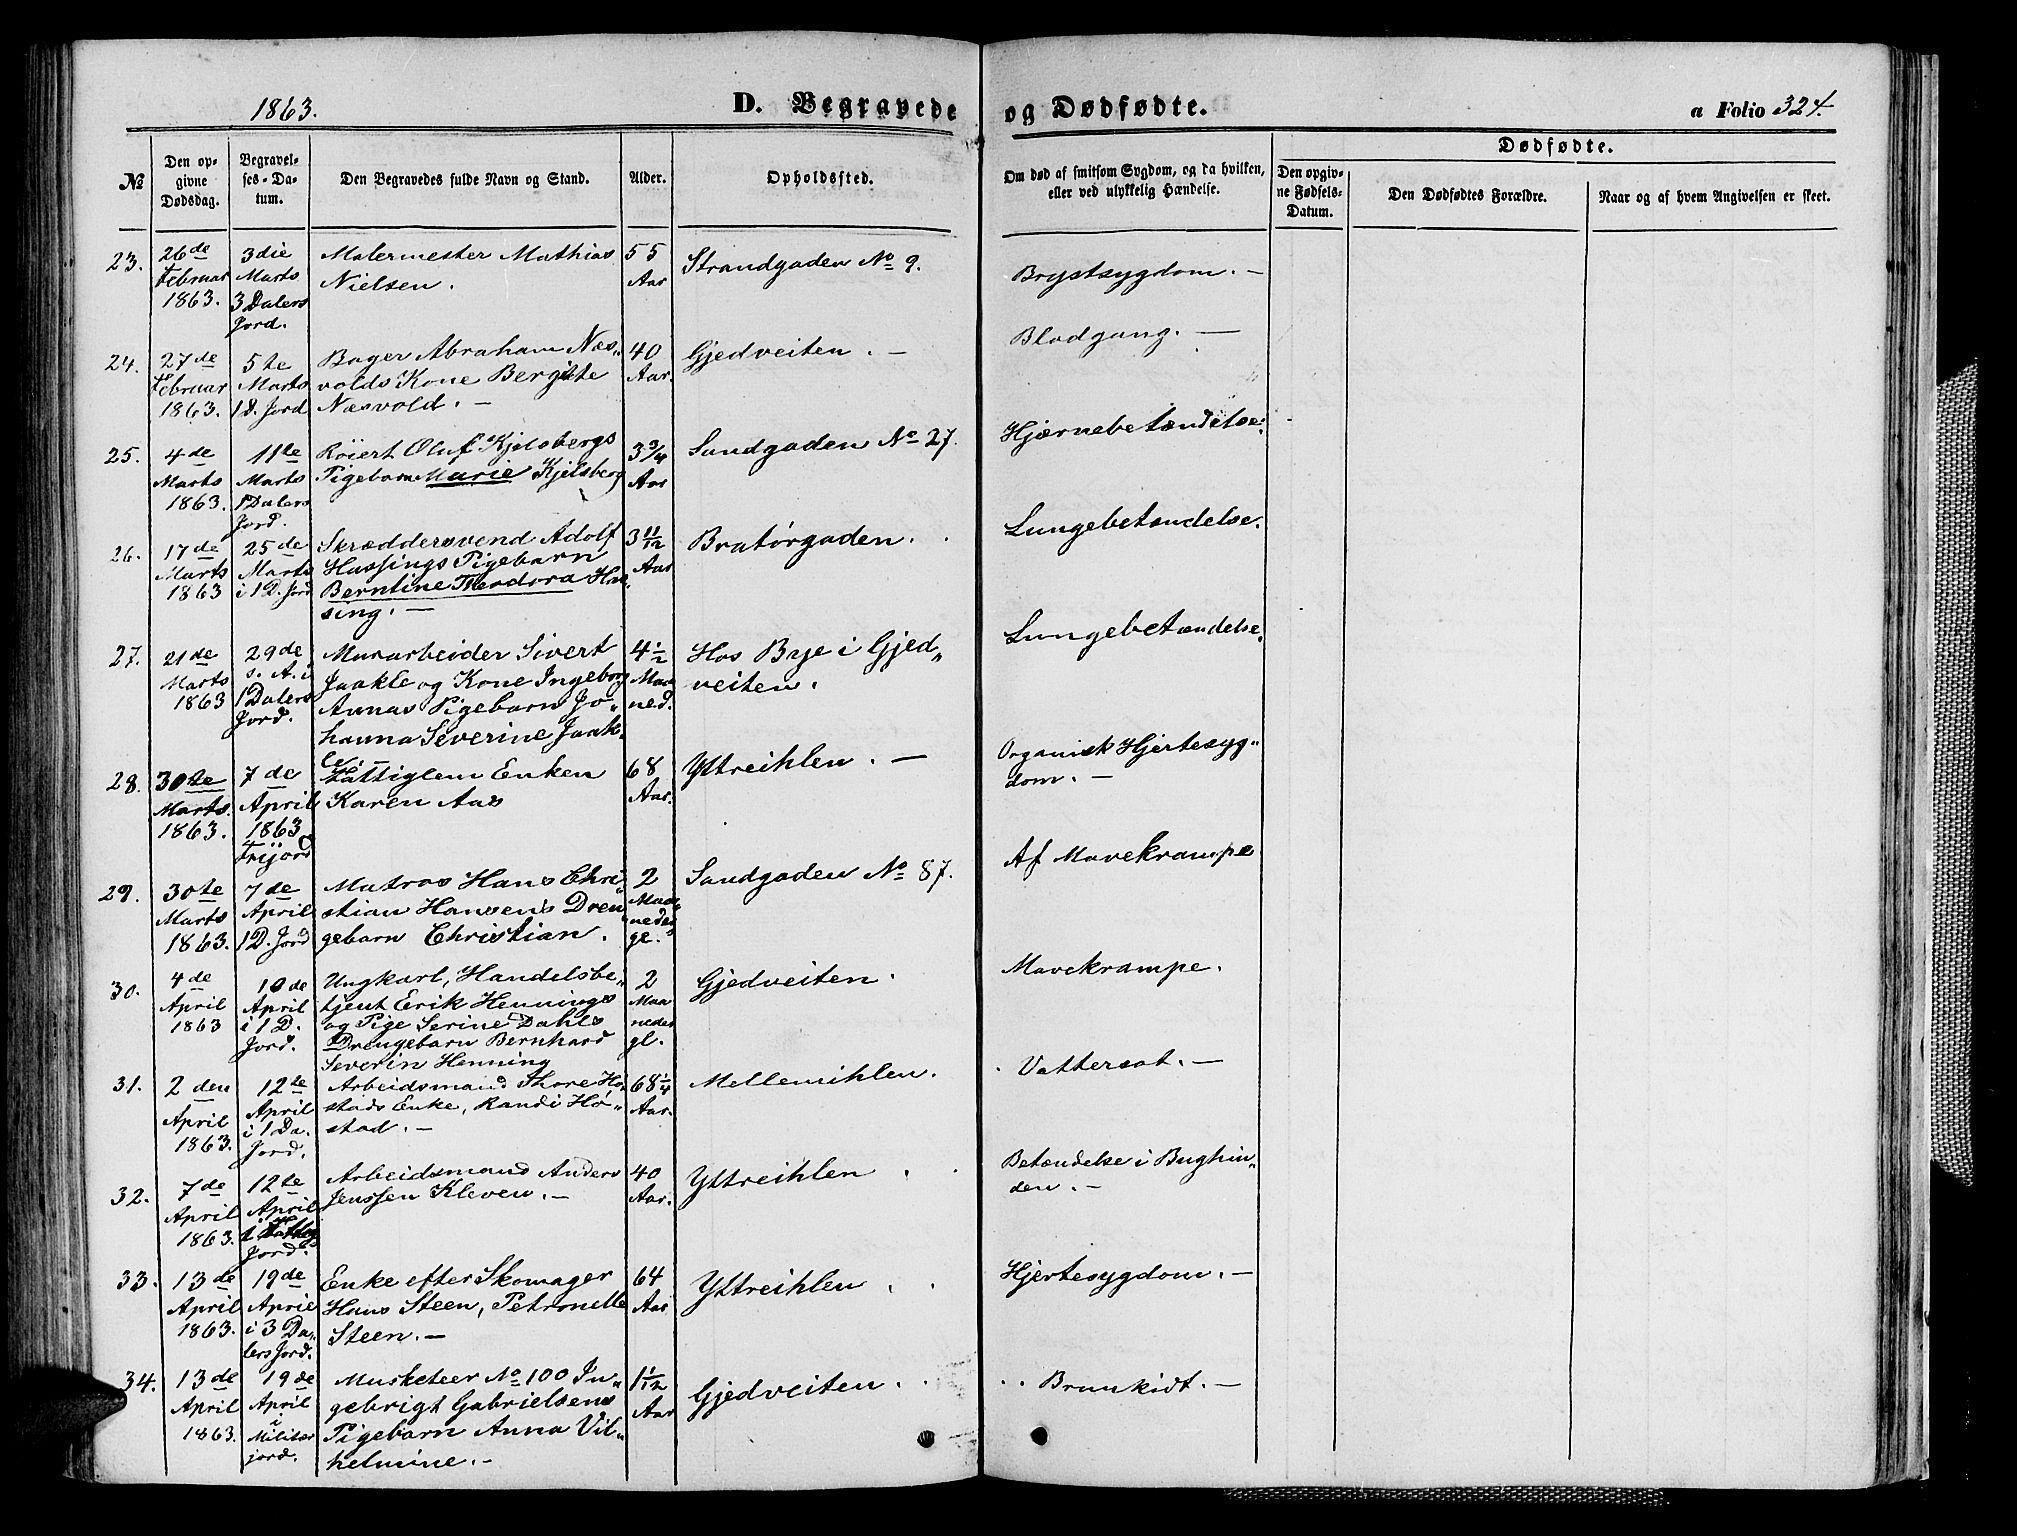 1863.
D. Begravede og Dødfødte.
a Folio 324.
No
Den op-
givne
Dødsdag.
Begravel-
ses-Da-
tum.
Den Begravedes fulde Navn og Stand.
Alder.
Opholdssted.
Om død af smitsom Sygdom, og da hvilken,
eller ved ulykkelig Hændelse.
Dødfødte.
Den opgiv-
ne Fødsels-
Datum.
Den Dødfødtes Forældre.
Naar og af hvem Angivelsen er skeet.
23.
26de
Februar
1863.
3die
Marts
3 Dalers
Jord.
Malermester Mathias
Nielsen.
55
Aar
Strandgaden No 9.
Brystsygdom. —
24.
27de
Februar
1863.
5te
Marts
1 D. Jord
Bager Abraham Næs„
volds Kone Bergitte
Næsvold. —
40
Aar.
Gjedveiten. —
Blodgang. —
25.
4de
Marts
1863.
11te
Marts
1 Dalers
Jord.
Røiert Oluf Kjelsbergs
Pigebarn Marie Kjelsberg
3 3/4
Aar
Sandgaden No 27.
Hjærnebetændelse.
26.
17de
Marts
1863
25de
Marts
i 1 D. Jord
Skræddersvend Adolf
Hassings Pigebarn
Berntine Theodora Has„
sing. —
3 11/12
Aar
Bratørgaden.
Lungebetændelse.
27.
21de
Marts
1863
29de
s. A. i
1 Dalers
Jord.
Murarbeider Sivert
Jaakle og Kone Ingeborg
Annas Pigebarn Jo„
hanna Severine Jaak-
le. —
4 1/2
Maa
ned.
Hos Bye i Gjed„
veiten.
Lungebetændelse.
28.
30te
Marts.
1863.
7de
April
1863
Frijord
Fattiglem Enken
Karen Aas
68
Aar.
Yttreihlen. —
Organisk Hjertesyg„
dom. —
29.
30te
Marts
1863.
7de
April
1 D. Jord
Matros Hans Chri„
stian Hansens Dren„
gebarn Christian.
2
Maa„
neder
gl.
Sandgaden No 87.
Af Mavekrampe
30.
4de
April
1863
10de
April
i 1 D.
Jord.
Ungkarl, Handelsbe„
tjent Erik Hennings
og Pige Serine Dahls
Drengebarn Bernhard
Severin Henning
2
Maa
neder
gl.
Gjedveiten.
Mavekrampe.
31.
2den
April
1863.
12te
April
i 1 Da.
Jord.
Arbeidsmand Thore Hø„
stads Enke, Randi Hø„
stad. —
68 1/4
Aar.
Mellemihlen.
Vattersot. —
32.
7de
April
1863.
12te
April
Jord.
Arbeidsmand Anders
Jenssen Kleven. —
40
Aar.
Yttreihlen
Betændelse i Bughin„
den. —
33.
13de
April
1863.
19de
April
i 3 Da„
lers Jord.
Enke efter Skomager
Hans Steen, Petronelle
Steen. —
64
Aar
Yttreihlen
Hjertesygdom. —
34.
13de
April
1863.
19de
April
i
Militær
jord.
Musketeer No 100 In„
gebrigt Gabrielsens
Pigebarn Anna Vil„
helmine. —
1 1/12
Aar
Gjedveiten.
Brunkidt. —